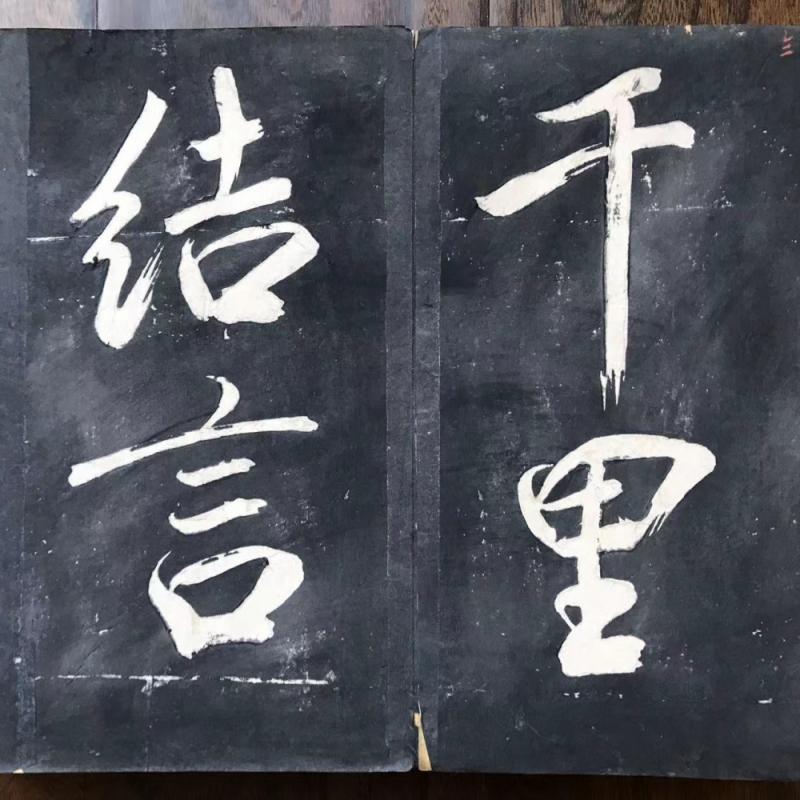 千里
结言